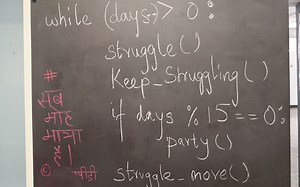 while (days) > 0 :
struggle()
Keep_Struggling()
if days % 15 == 0:
party()
struggle_move()
#
सब
मोह
माया
है।
©